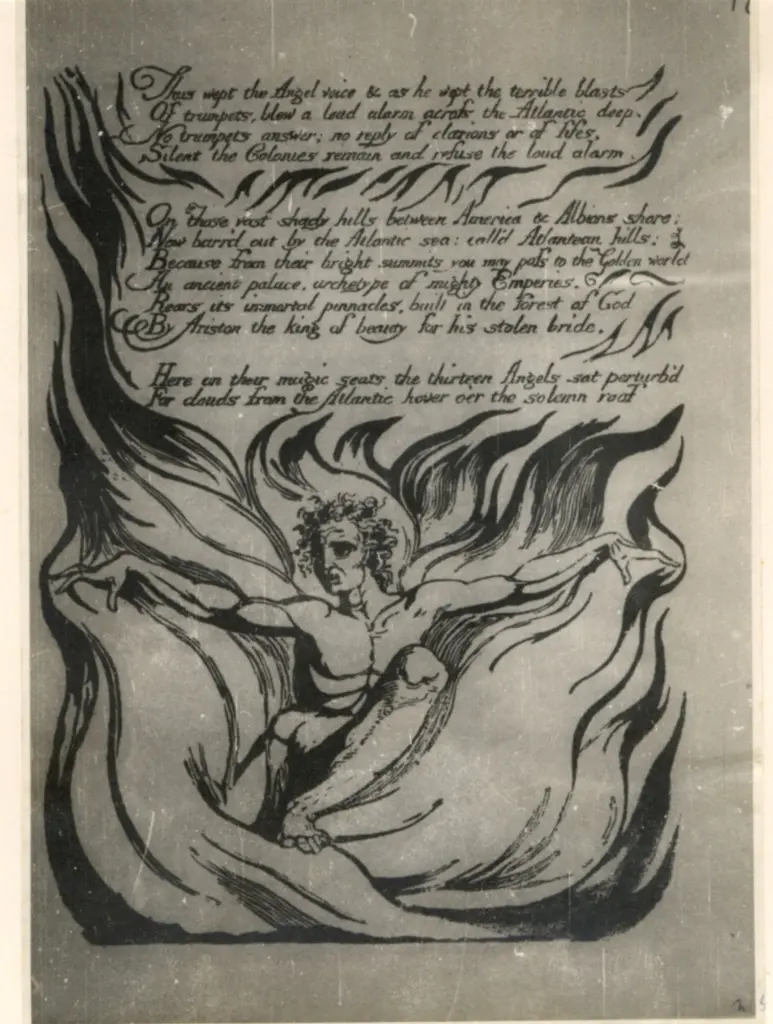 Thus wept the Angel voice & as he wept the terrible blasts
Of trumpets, blew a loud alarm across the Atlantic deep.
No trumpets answer; no reply of clarions or of fifes,
Silent the Colonies remain and refuse the loud alarm.
On those vast shady hills between America & Albions shore;
Now barr'd out by the Atlantic sea: call'd Atlantean hills;
Because from their bright summits you may pass to the Golden world
An ancient palace, archetype of mighty Emperies,
Rears its immortal pinnacles, built in the forest of God
By Ariston the king of beauty for his stolen bride.
Here on their magic seats the thirteen Angels sat perturb'd
For clouds from the Atlantic hover oer the solemn roof